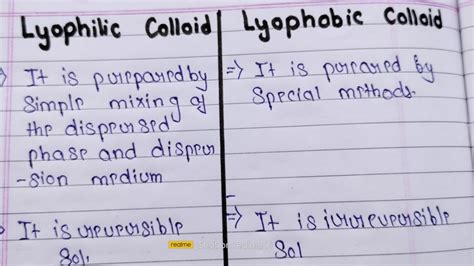 Lyophilic Colloid
Lyophobic Colloid
It is purepared by
simple mixing of
the dispeursed
phase and dispeur
-sion medium
⇒ It is pureared by
Special methods.
It is ureveursible
Sol.
⇒ It is irureveursible
Sol
realme